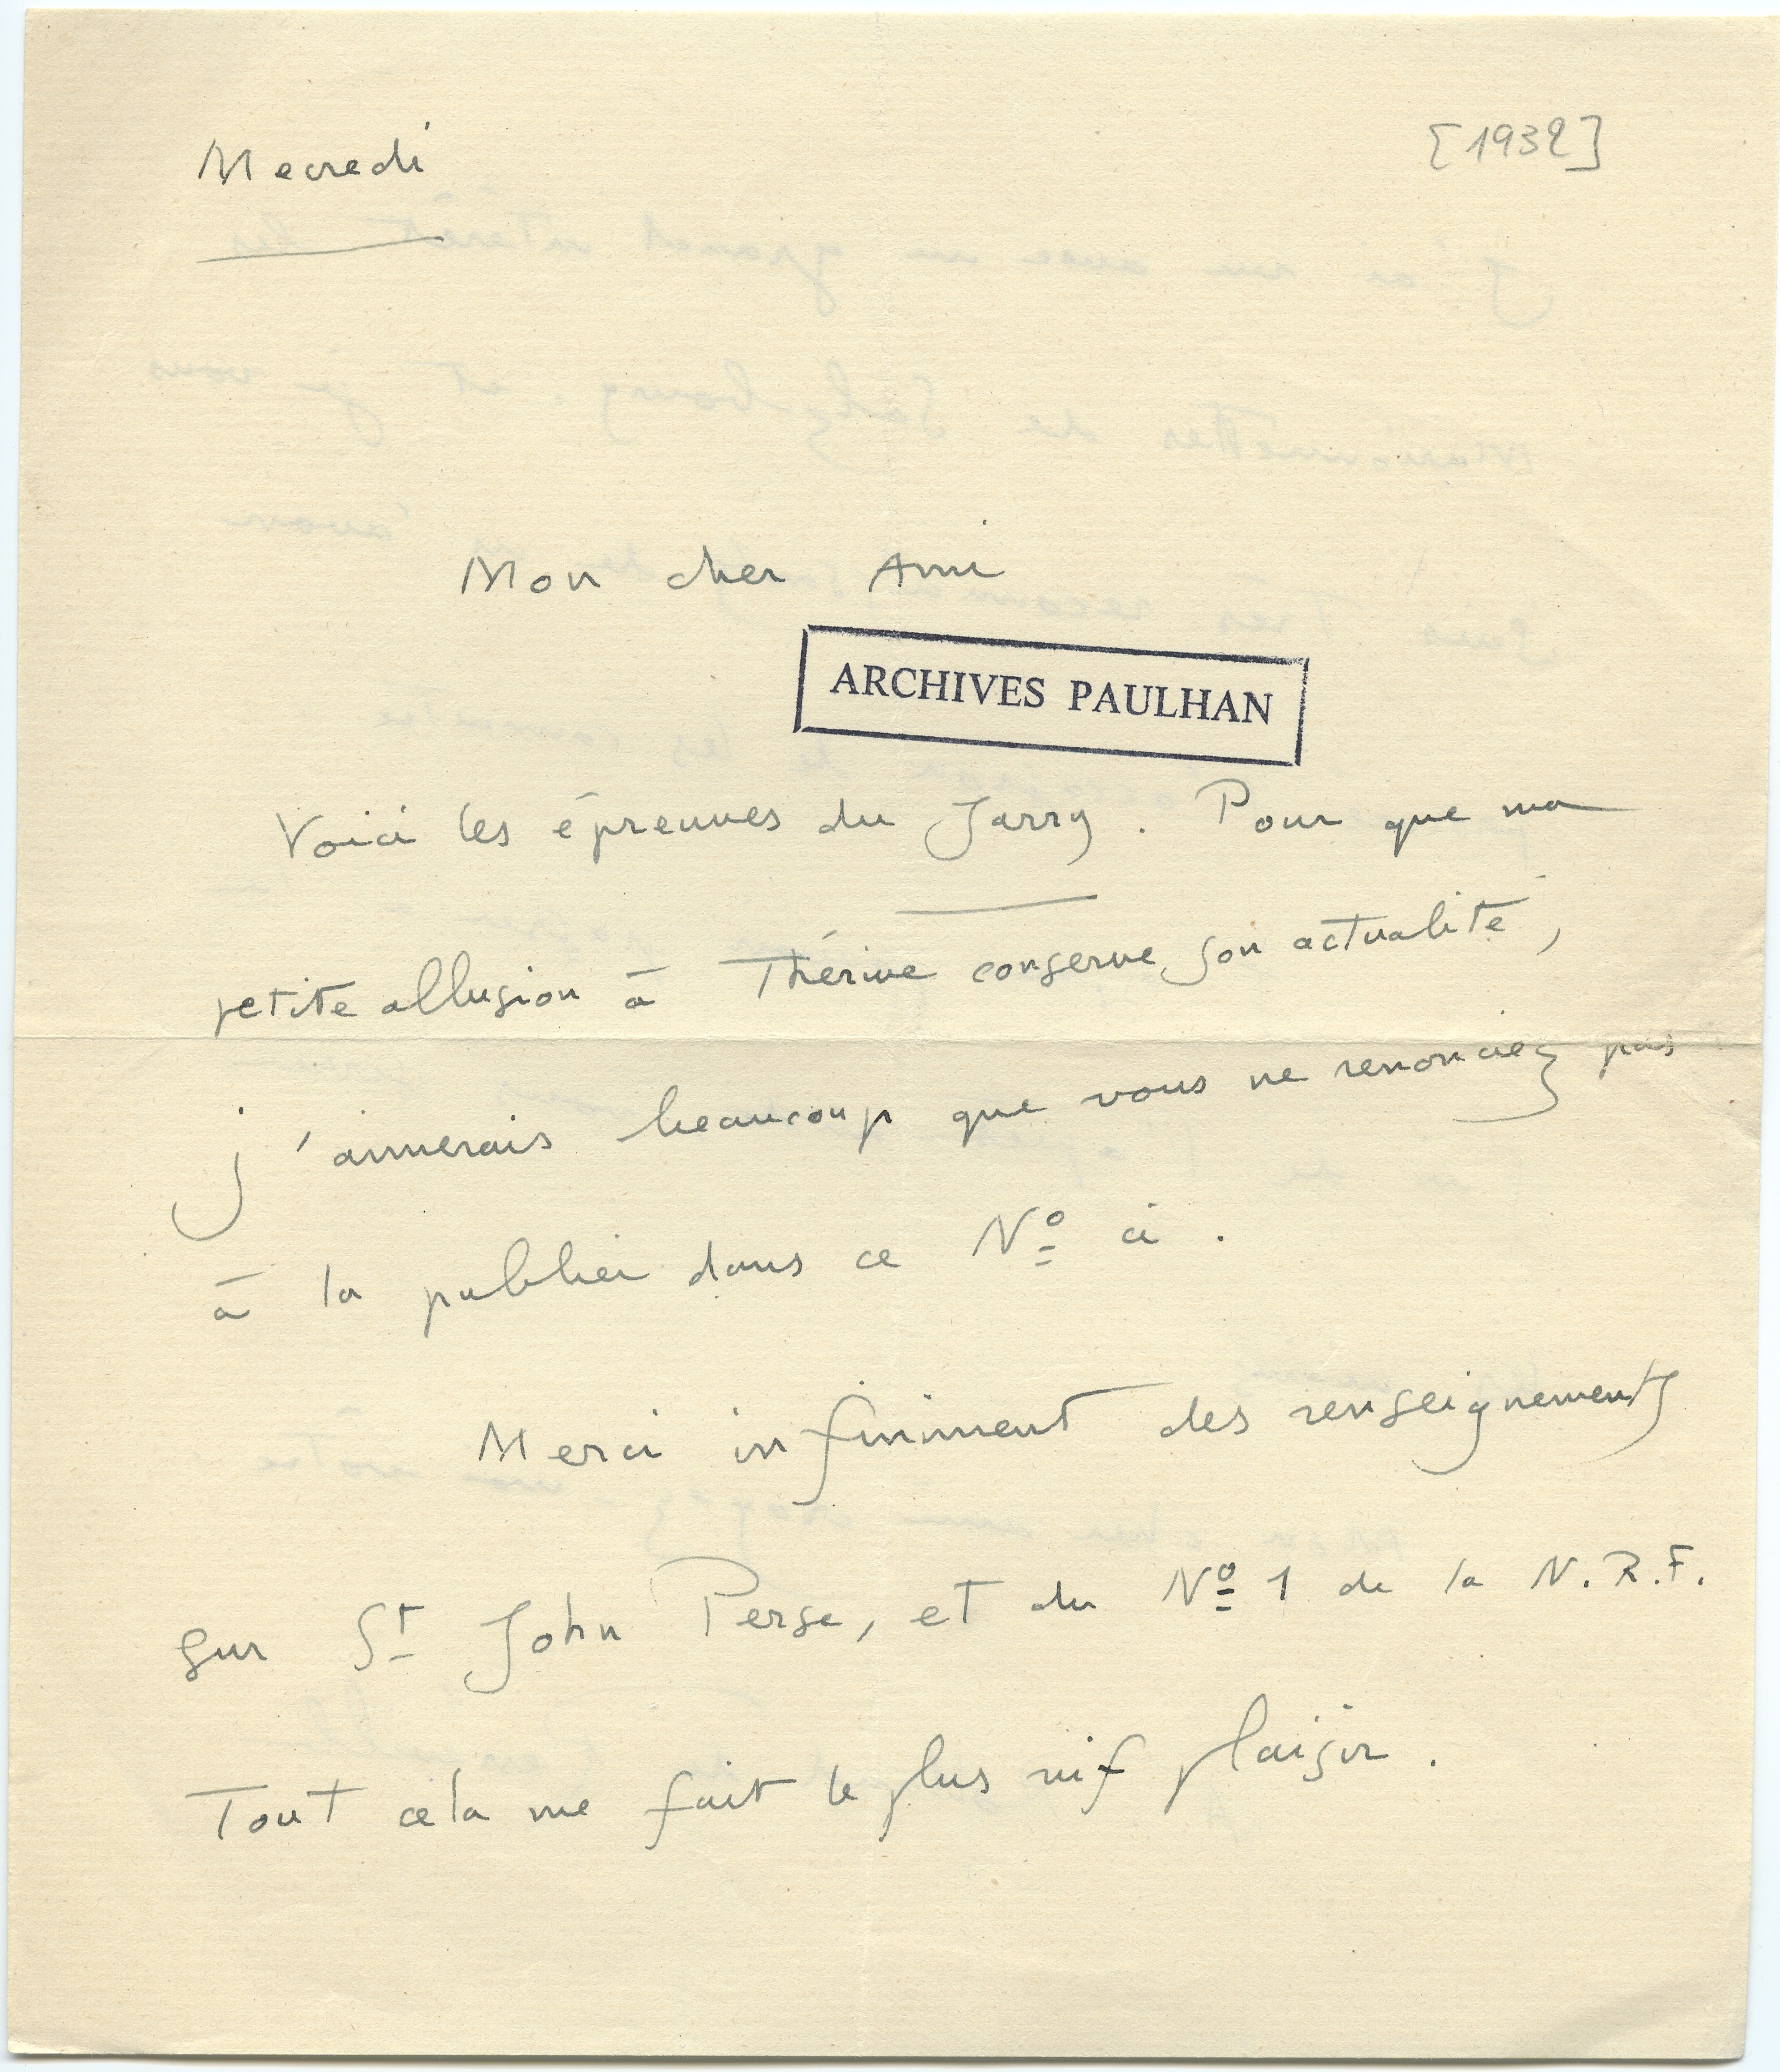 Mecredi
[1932]
Mon cher Ami
ARCHIVES PAULHAN
Voici les épreuves du Jarry. Pour que ma
petite allusion à Thérive conserve son actualité,
j'aimerais beaucoup que vous ne renonciez pas
à la publier dans ce Nº ci.
Merci infiniment des renseignements
sur St John Perse, et du Nº 1 de la N.R.F.
Tout cela me fait le plus vif plaisir.